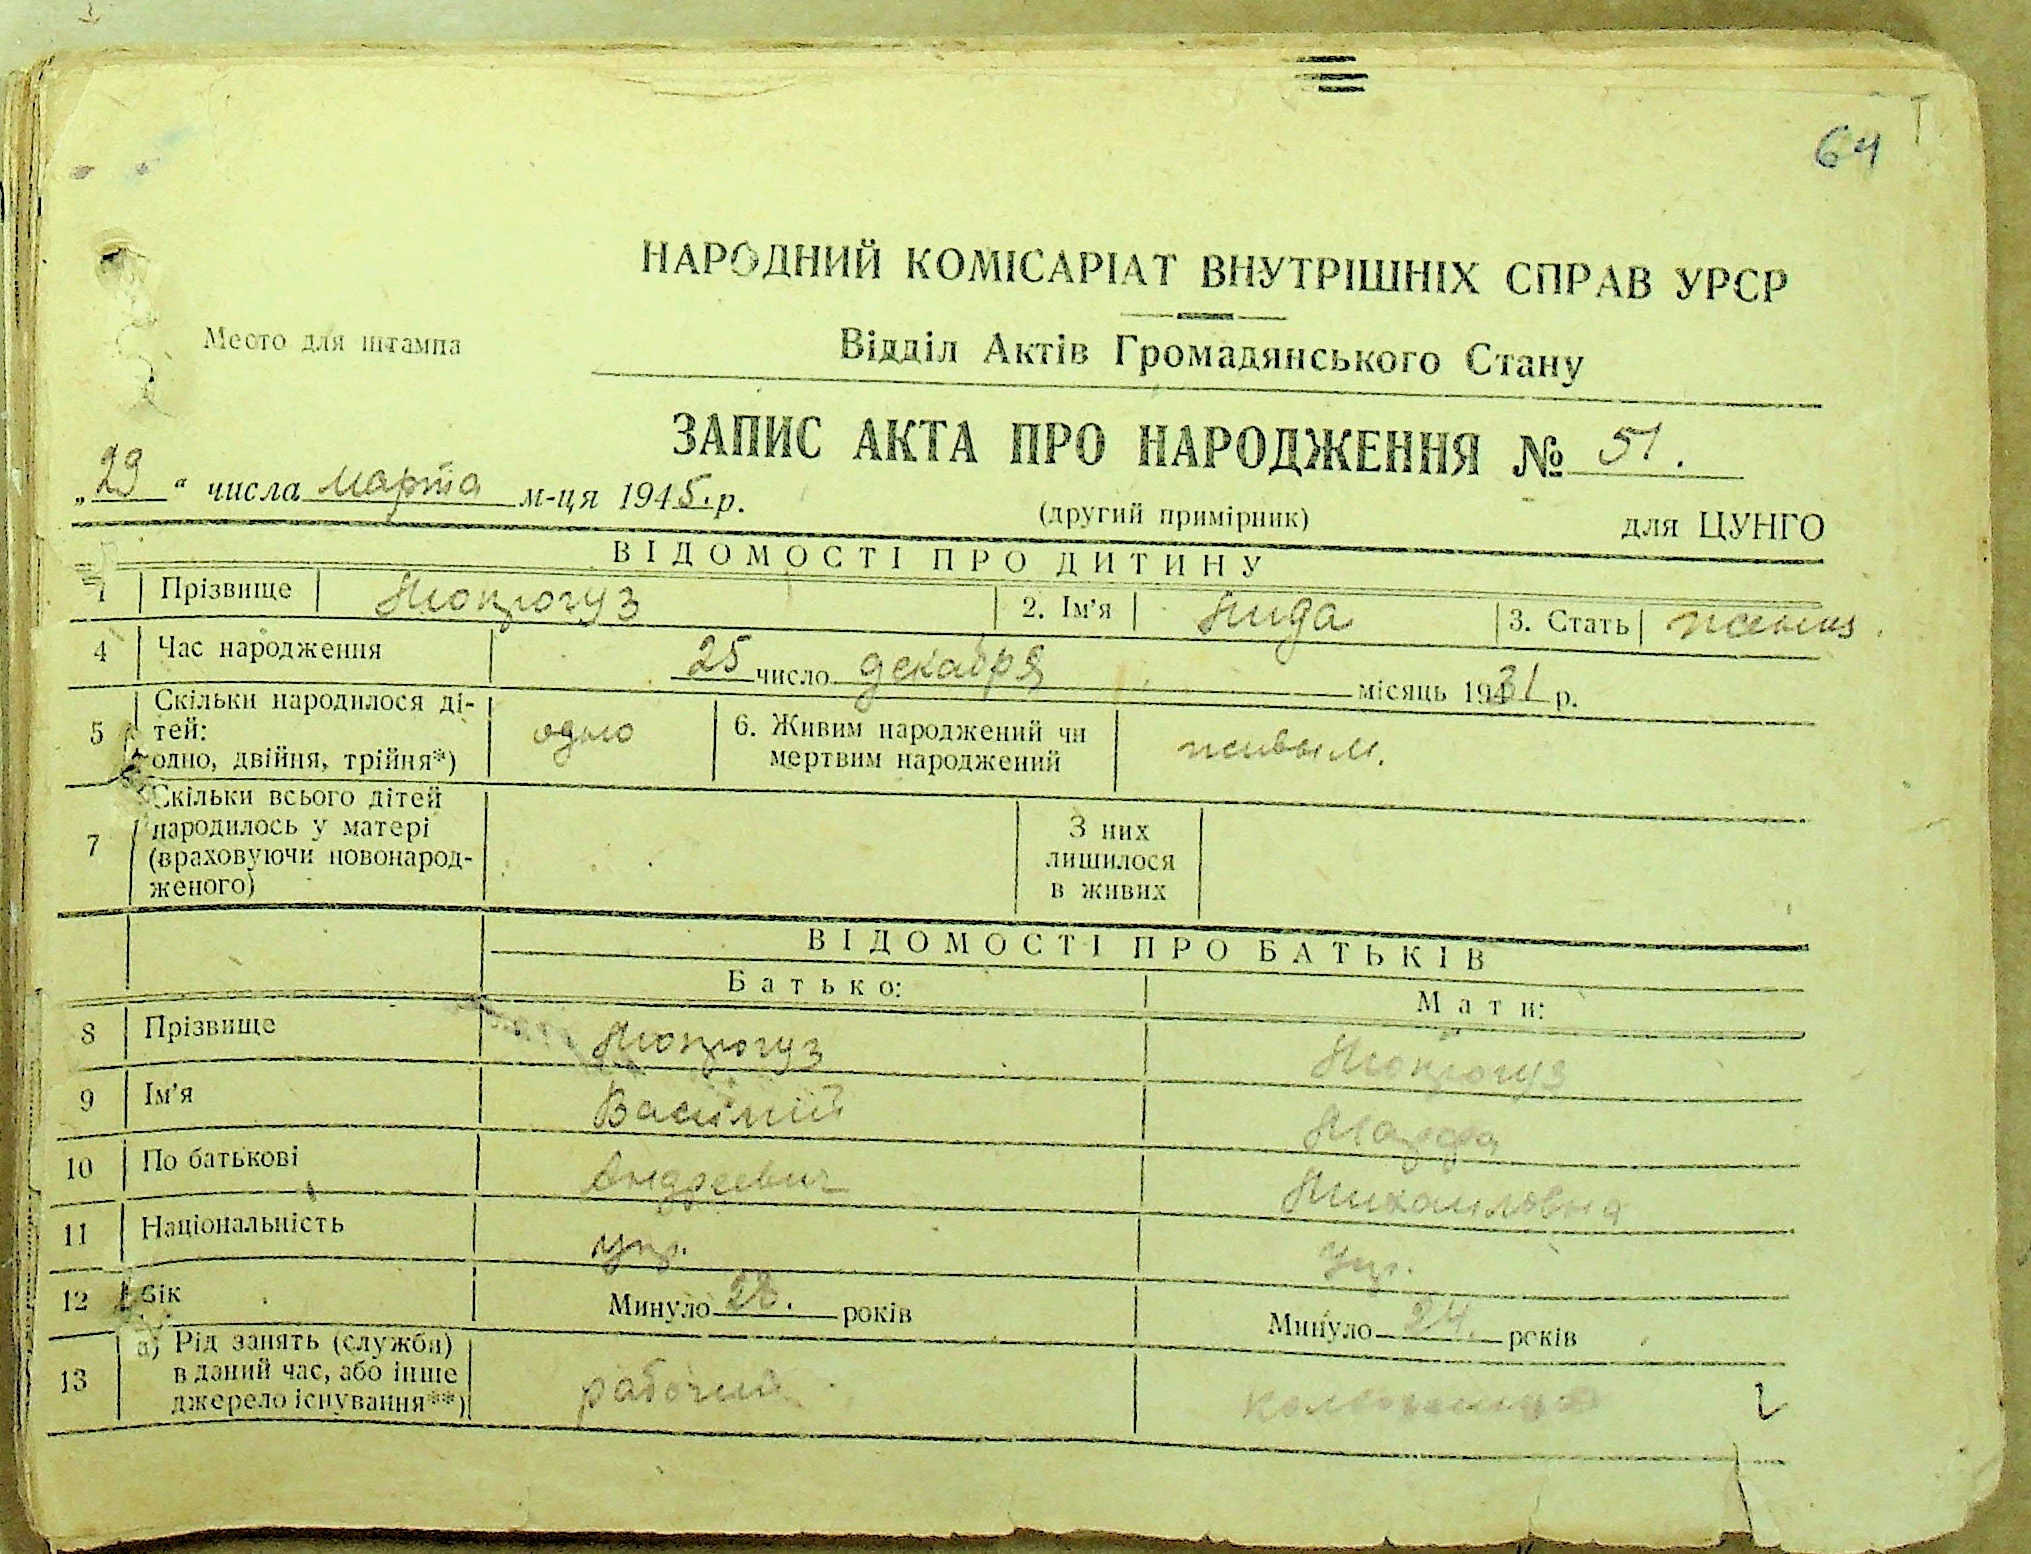 64
НАРОДНИЙ КОМІСАРІАТ ВНУТРІШНІХ СПРАВ УРСР
Место для штампа
Відділ Актів Громадянського Стану
ЗАПИС АКТА ПРО НАРОДЖЕННЯ № 51.
„29“ числа марта м-ця 1945. р.
(другий примірник) для ЦУНГО
ВІДОМОСТІ ПРО ДИТИНУ
1 Прізвище 2. Ім'я Лида 3. Стать женск.
4 Час народження 25 число декабря місяць 1931 р.
5 Скільки народилося ді-
тей:
одно, двійня, трійня*) одно
6. Живим народжений чи
мертвим народжений живым.
7 Скільки всього дітей
народилось у матері
(враховуючи новонарод-
женого)
З них
лишилося
в живих
ВІДОМОСТІ ПРО БАТЬКІВ
Батько: Мати:
8 Прізвище
9 Ім'я Василий Марфа
10 По батькові Андреевич Михайловна
11 Національність укр. Укр.
12 Вік Минуло 28. років Минуло 24. років
13 а) Рід занять (служби)
в даний час, або інше
джерело існування**) рабочий колхозница